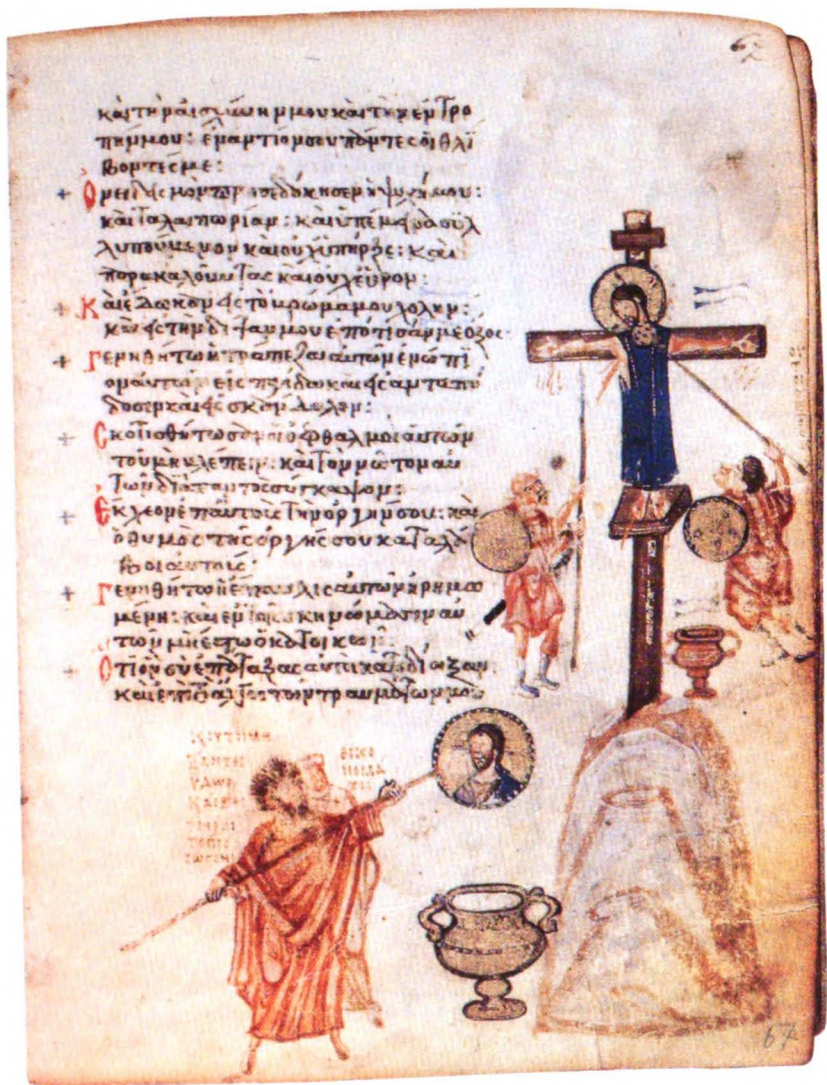 καὶ τὴν αἰσχύνην μου καὶ τὴν ἐντρο
πήν μου: ἐναντίον σου πάντες οἱ θλί
βοντές με:
+ Ὀνειδισμὸν προσεδόκησεν ἡ ψυχή μου:
καὶ ταλαιπωρίαν: καὶ ὑπέμεινα συλ
λυπούμενον καὶ οὐχ ὑπῆρξε: καὶ
παρακαλοῦντας καὶ οὐχ εὗρον:
+ Καὶ ἔδωκαν εἰς τὸ βρῶμά μου χολήν:
καὶ εἰς τὴν δίψαν μου ἐπότισάν με ὄξος:
+ Γενηθήτω ἡ τράπεζα αὐτῶν ἐνώπι
ον αὐτῶν εἰς παγίδα καὶ εἰς ἀνταπό
δοσιν καὶ εἰς σκάνδαλον:
+ Σκοτισθήτωσαν οἱ ὀφθαλμοὶ αὐτῶν
τοῦ μὴ βλέπειν: καὶ τὸν νῶτον αὐ
τῶν διὰ παντὸς σύγκαμψον:
+ Ἔκχεον ἐπ' αὐτοὺς τὴν ὀργήν σου: καὶ
ὁ θυμὸς τῆς ὀργῆς σου καταλά
βοι αὐτούς:
+ Γενηθήτω ἡ ἔπαυλις αὐτῶν ἠρημω
μένη: καὶ ἐν τοῖς σκηνώμασιν αὐ
τῶν μὴ ἔστω ὁ κατοικῶν:
+ Ὅτι ὃν σὺ ἐπάταξας αὐτοὶ κατεδίωξαν:
καὶ ἐπὶ τὸ ἄλγος τῶν τραυμάτων μου
67